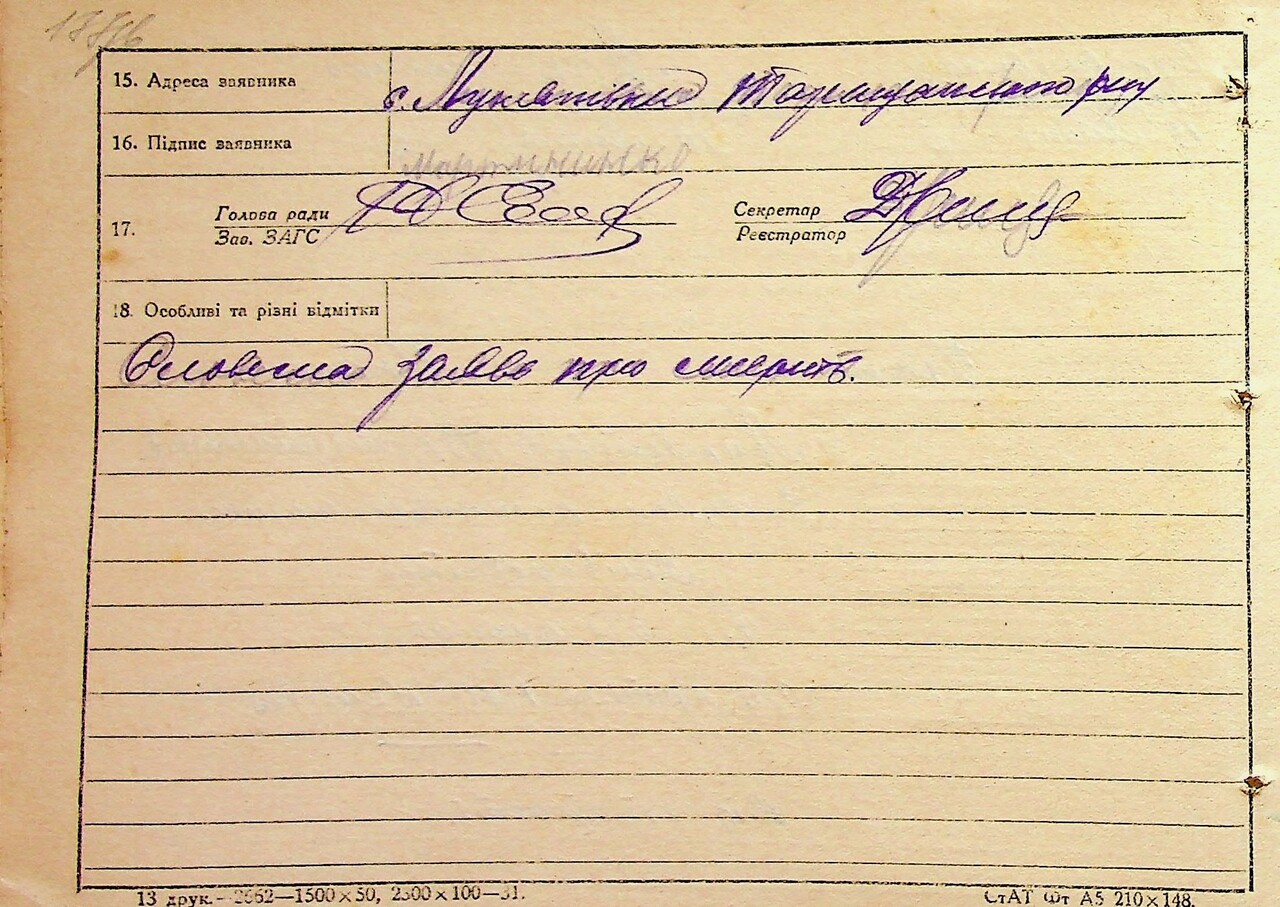 15. Адреса заявника с. Лукянівка Таращанського р-ну
16. Підпис заявника Мартиненко
17. Голова ради Секретар
Зав. ЗАГС Реєстратор
18. Особливі та різні відмітки
Словесна заява про смерть.
13 друк.—2662—1500×50, 2300×100—31. СтАТ Фт А5 210×148.